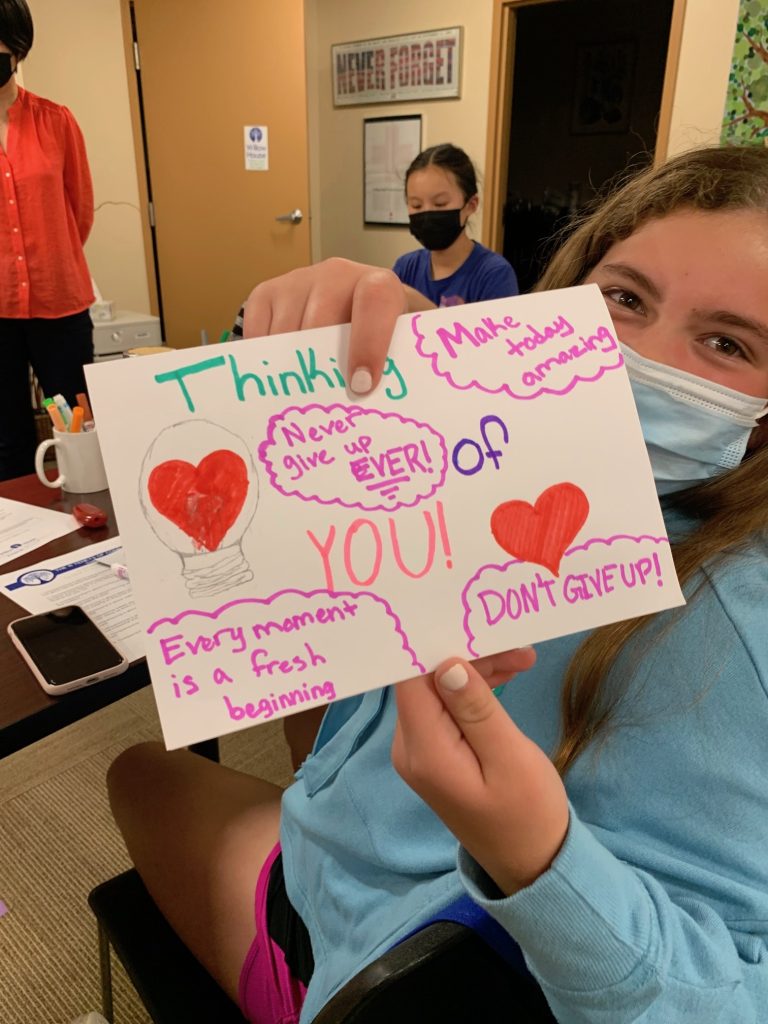 NEVER FORGET
Willow
House
Thinking
of
YOU!
Make
today
amazing
Never
give up
EVER!
Every moment
is a fresh
beginning
DON'T GIVE UP!